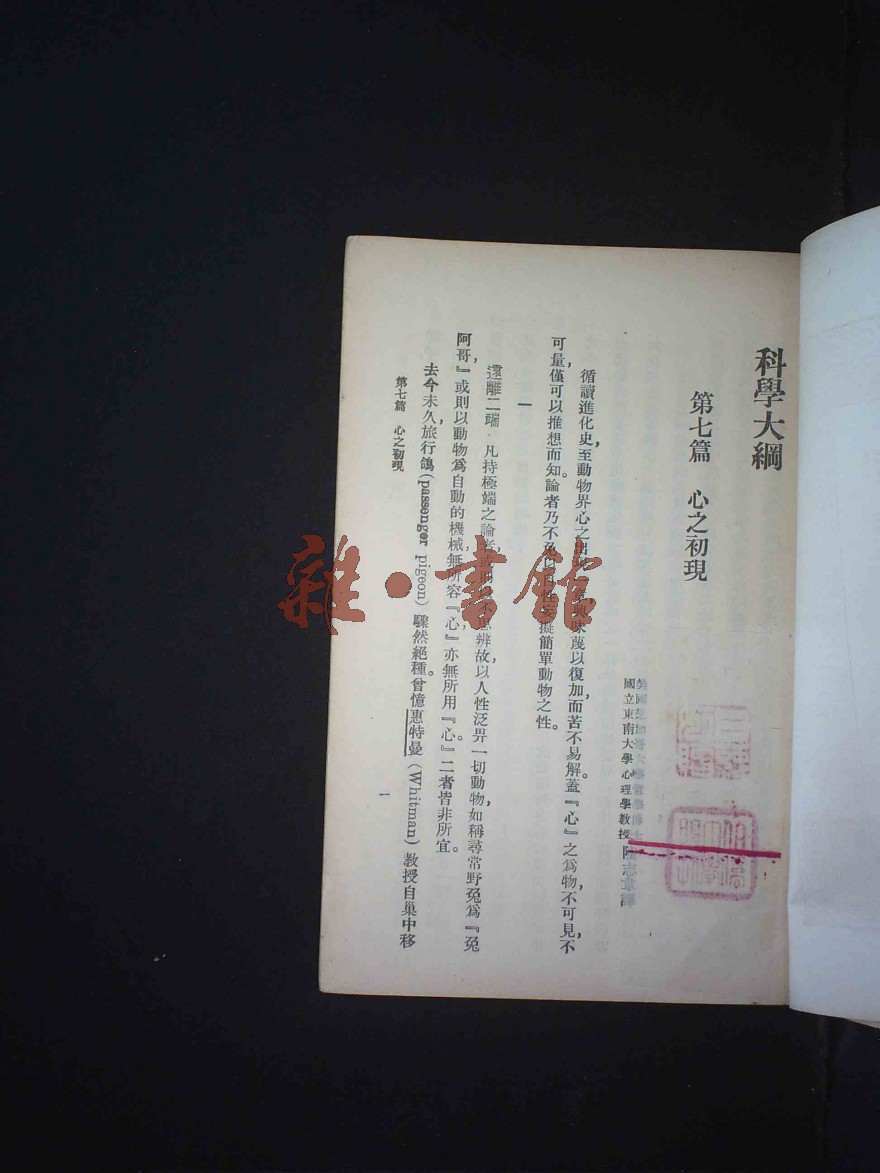 科學大綱
第七篇 心之初現
國立東南大學心理學教授 陸志韋譯
循讀進化史，至動物界心之出現，興味蔑以復加，而苦不易解。蓋『心』之為物，不可見，不
可量，僅可以推想而知。論者乃不免擬簡單動物之性。
一
遠離二端 凡持極端之論者，思辨故，以人性泛畀一切動物，如稱尋常野兔為『兔
阿哥，』或則以動物為自動的機械，無所容『心，』亦無所用『心。』二者皆非所宜。
去今未久，旅行鴿 (passenger pigeon) 驟然絕種。曾憶惠特曼 (Whitman) 教授自巢中移
第七篇 心之初現
一
雜·書館